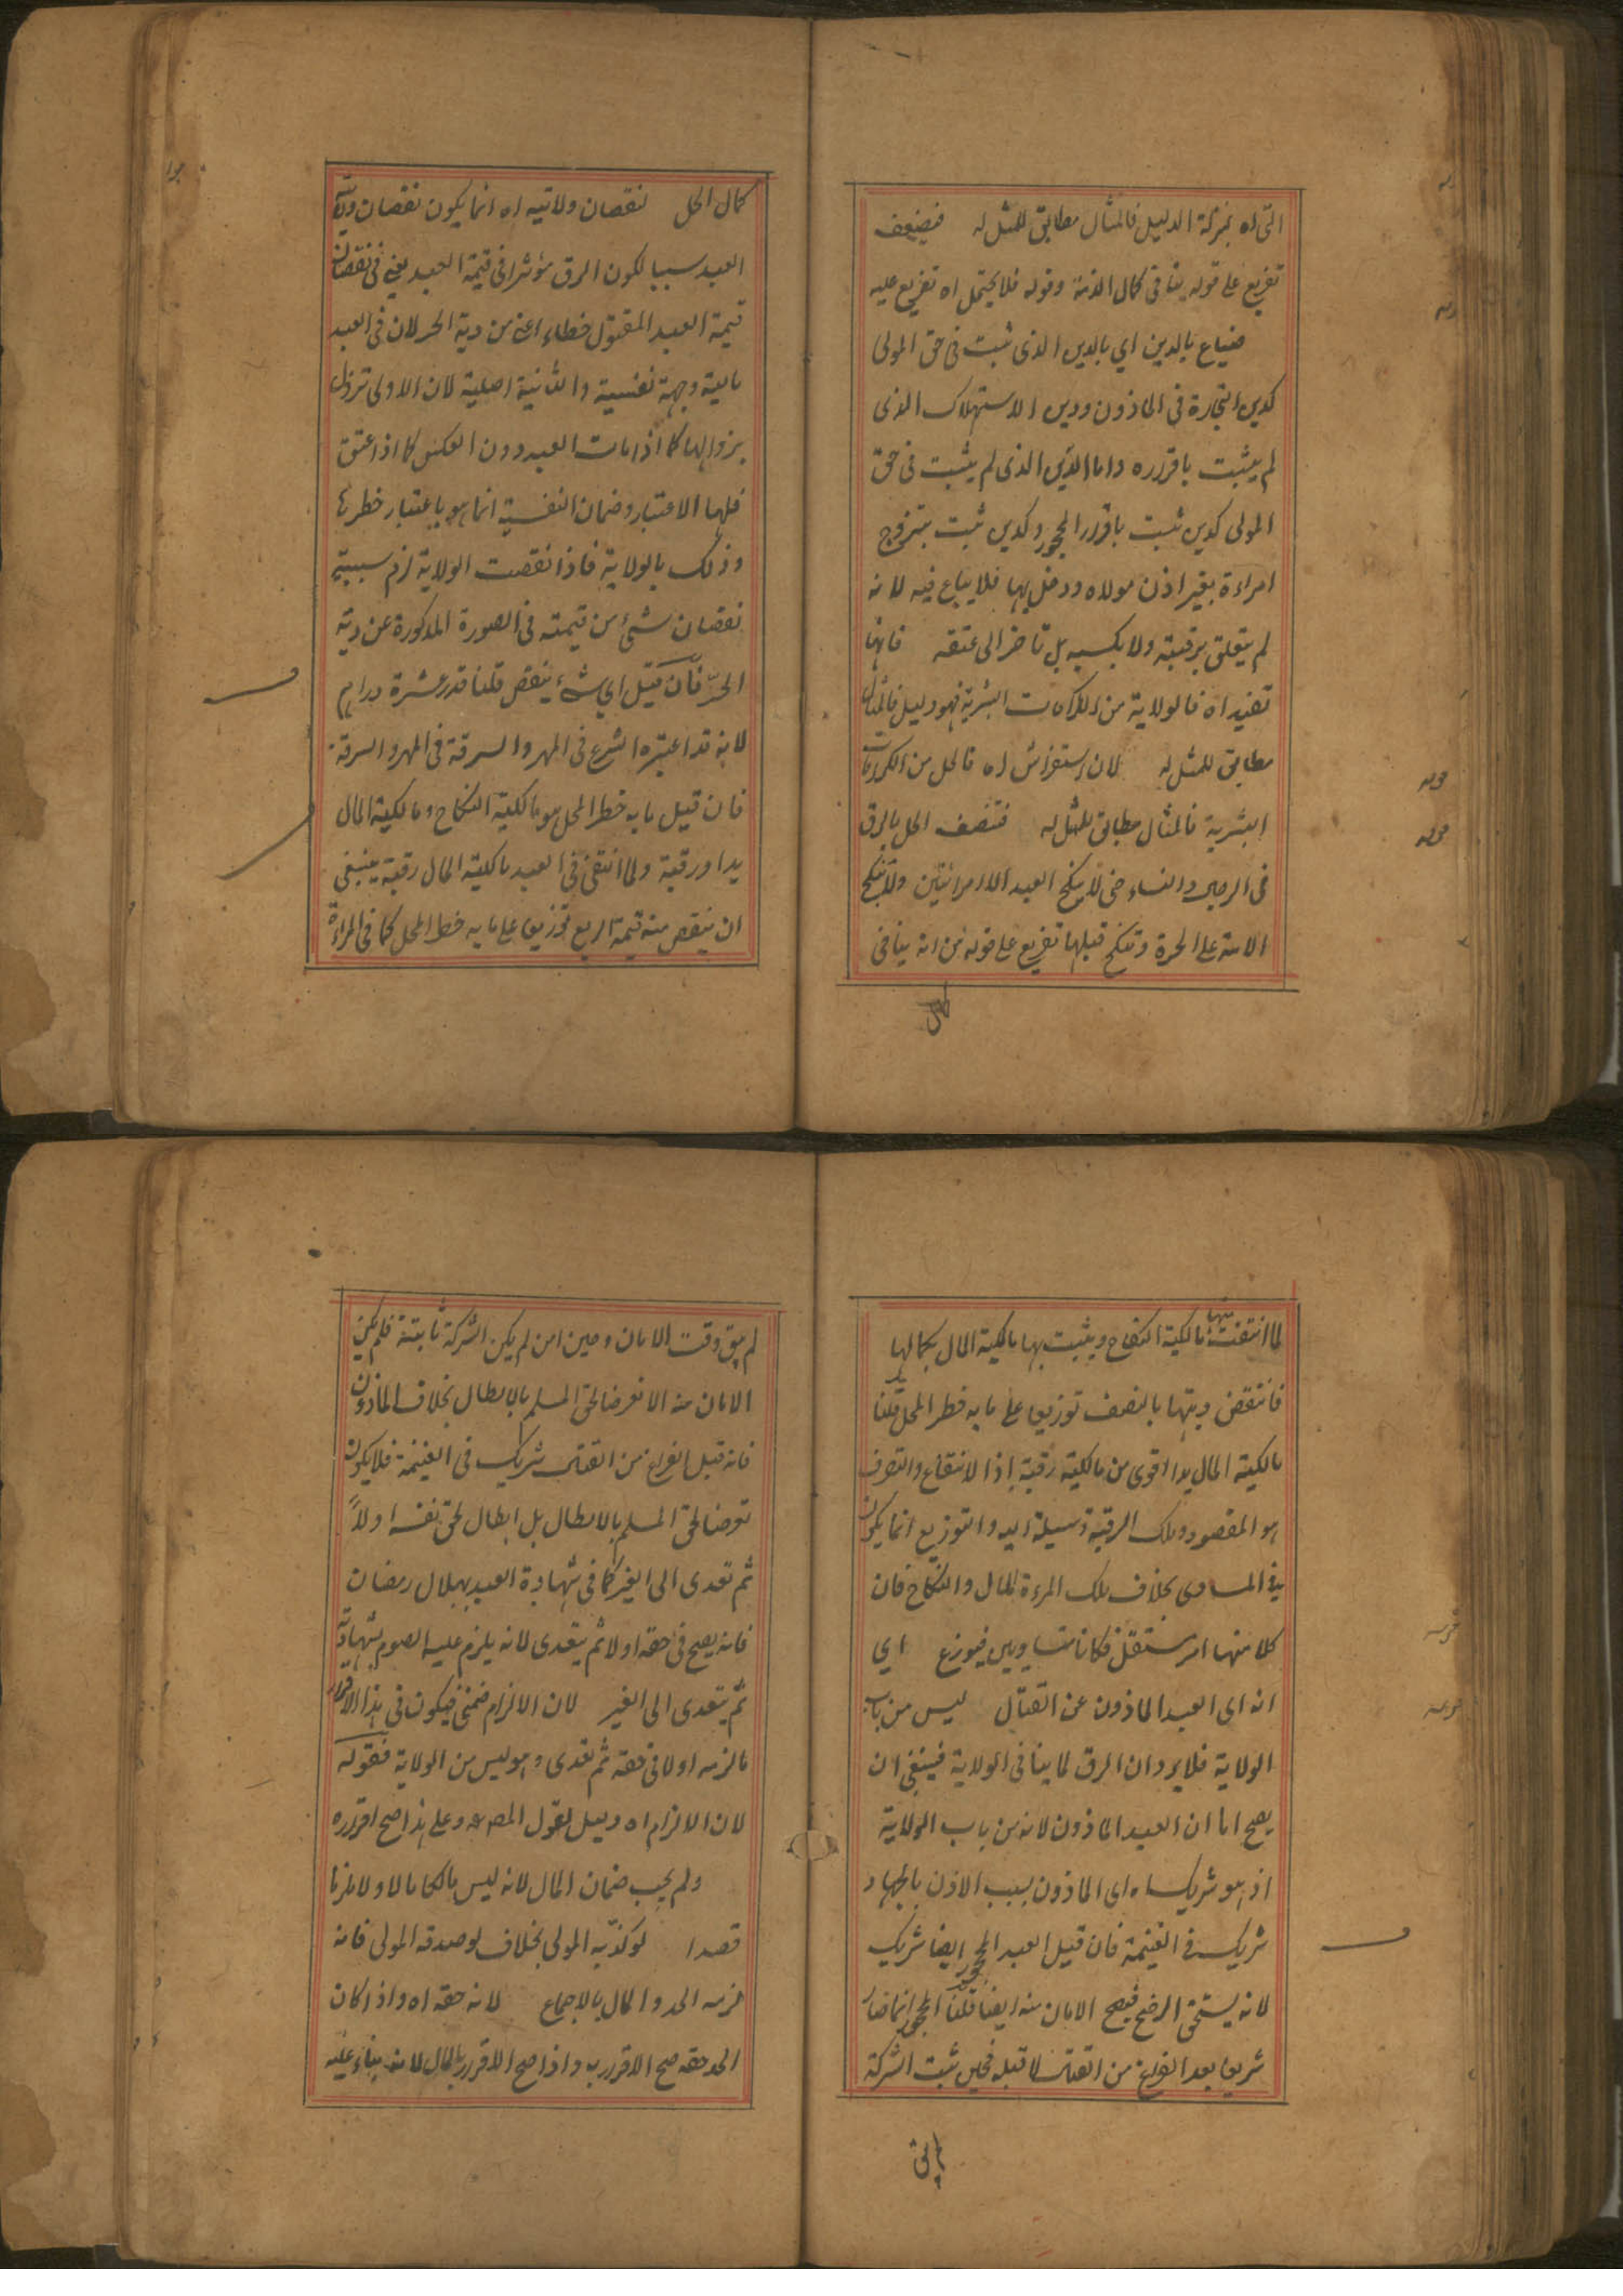 التى اه بمنزلة الدليل فالمثال مطابق للمثل له فيضعف
تفريع على قوله ينافى كمال الذمة وقوله فلا يحتمل اه تفريع عليه
فيباع بالدين اي بالدين الذى ثبت فى حق المولى
كدين التجارة فى الماذون ودين الاستهلاك الذى
لم يثبت باقراره واما الدين الذى لم يثبت فى حق
المولى كدين ثبت باقرار المحجور وكدين ثبت بتزوج
امراءة بغير اذن مولاه ودخل بها فلا يباع فيه لانه
لم يتعلق برقبته ولا بكسبه بل تاخر الى عتقه فانها
تفيد اه فالولاية من الكرامات البشرية فهو دليل فالمثال
مطابق للمثل له لان استفراش اه فالحل من الكرامات
البشرية فالمثال مطابق للمثل له فتنصف الحل بالرق
فى الرجل والنساء حتى لا ينكح العبد الا امرائتين ولا تنكح
الامة على الحرة وتنكح قبلها تفريع على قوله من انه ينافى
كمال
كمال الحل نقصان ولايته اه انما يكون نقصان ولاية
العبد سببا لكون الرق مؤثرا فى قيمة العبد يعنى فى نقصان
قيمة العبد المقتول خطاء اعنى من دية الحر لان فى العبد
مالية وجهة نفسية والثانية اصلية لان الاولى تزول
بزوالها كما اذا مات العبد دون العكس كما اذا عتق
فلها الاعتبار وضمان النفسية انما هو باعتبار خطرها
وذلك بالولاية فاذا نقصت الولاية لزم سببية
نقصان شئ من قيمته فى الصورة المذكورة عن دية
الحر فان قيل اي شئ ينقص قلنا قدر عشرة دراهم
لانه قد اعتبره الشرع فى المهر والسرقة فى المهر والسرقة
فان قيل ما به خطر المحل هو مالكية النكاح ومالكية المال
يدا ورقبة ولما انتفى فى العبد مالكية المال رقبة ينبغى
ان ينقص منه قيمته الربع توزيعا على ما به خطر المحل كما فى المراءة
لما انتفت منها مالكية النكاح ويثبت بها مالكية المال بكمالها
فانتقص ديتها بالنصف توزيعا على ما به خطر المحل قلنا
مالكية المال يدا اقوى من مالكيته رقبة اذا الانتفاع والتصرف
هو المقصود وملك الرقبة وسيلة اليه والتوزيع انما يكون
فى المساوى بخلاف ملك المرءة المال والنكاح فان
كلا منهما امر مستقل فكانا متساويين فيوزع اي
انه اى العبد الماذون عن القتال ليس من باب
الولاية فلا يرد ان الرق لما ينافى الولاية فينبغى ان
يصح امان العبد الماذون لانه من باب الولاية
اذ هو شريك اه اى الماذون بسبب الاذن بالجهاد
شريك فى الغنيمة فان قيل العبد المحجور ايضا شريك
لانه يستحق الرضخ فيصح الامان منه ايضا قلنا المحجور انما صار
شريكا بعد الفراغ من القتال لا قبله فحين ثبت الشركة
لم يبق وقت الامان وحين امن لم يكن الشركة ثابتة فلم يكن
الامان منه الا تعرضا لحق المسلم بالابطال بخلاف الماذون
فانه قبل الفراغ من القتال شريك فى الغنيمة فلا يكون
تعرضا لحق المسلم بالابطال بل ابطال لحق نفسه اولاً
ثم تعدى الى الغير كما فى شهادة العبد بهلال رمضان
فانه يصح فى حقه اولا ثم يتعدى لانه يلزم عليه الصوم بشهادته
ثم يتعدى الى الغير لان الالزام ضمنى فيكون فى هذا الاقرار
ما لزمه اولا فى حقه ثم تعدى وهو ليس من الولاية فقوله
لان الالزام اه دليل لقول المصـ وعلى هذا صح اقراره
ولم يجب ضمان المال لانه ليس مالكا مالا ولا ملزما
قصدا لو كذبه المولى بخلاف لو صدقه المولى فانه
لزمه الحد والمال بالاجماع لانه حقه اه واذا كان
الحد حقه صح الاقرار به واذا صح الاقرار بالمال لانه بناء عليه